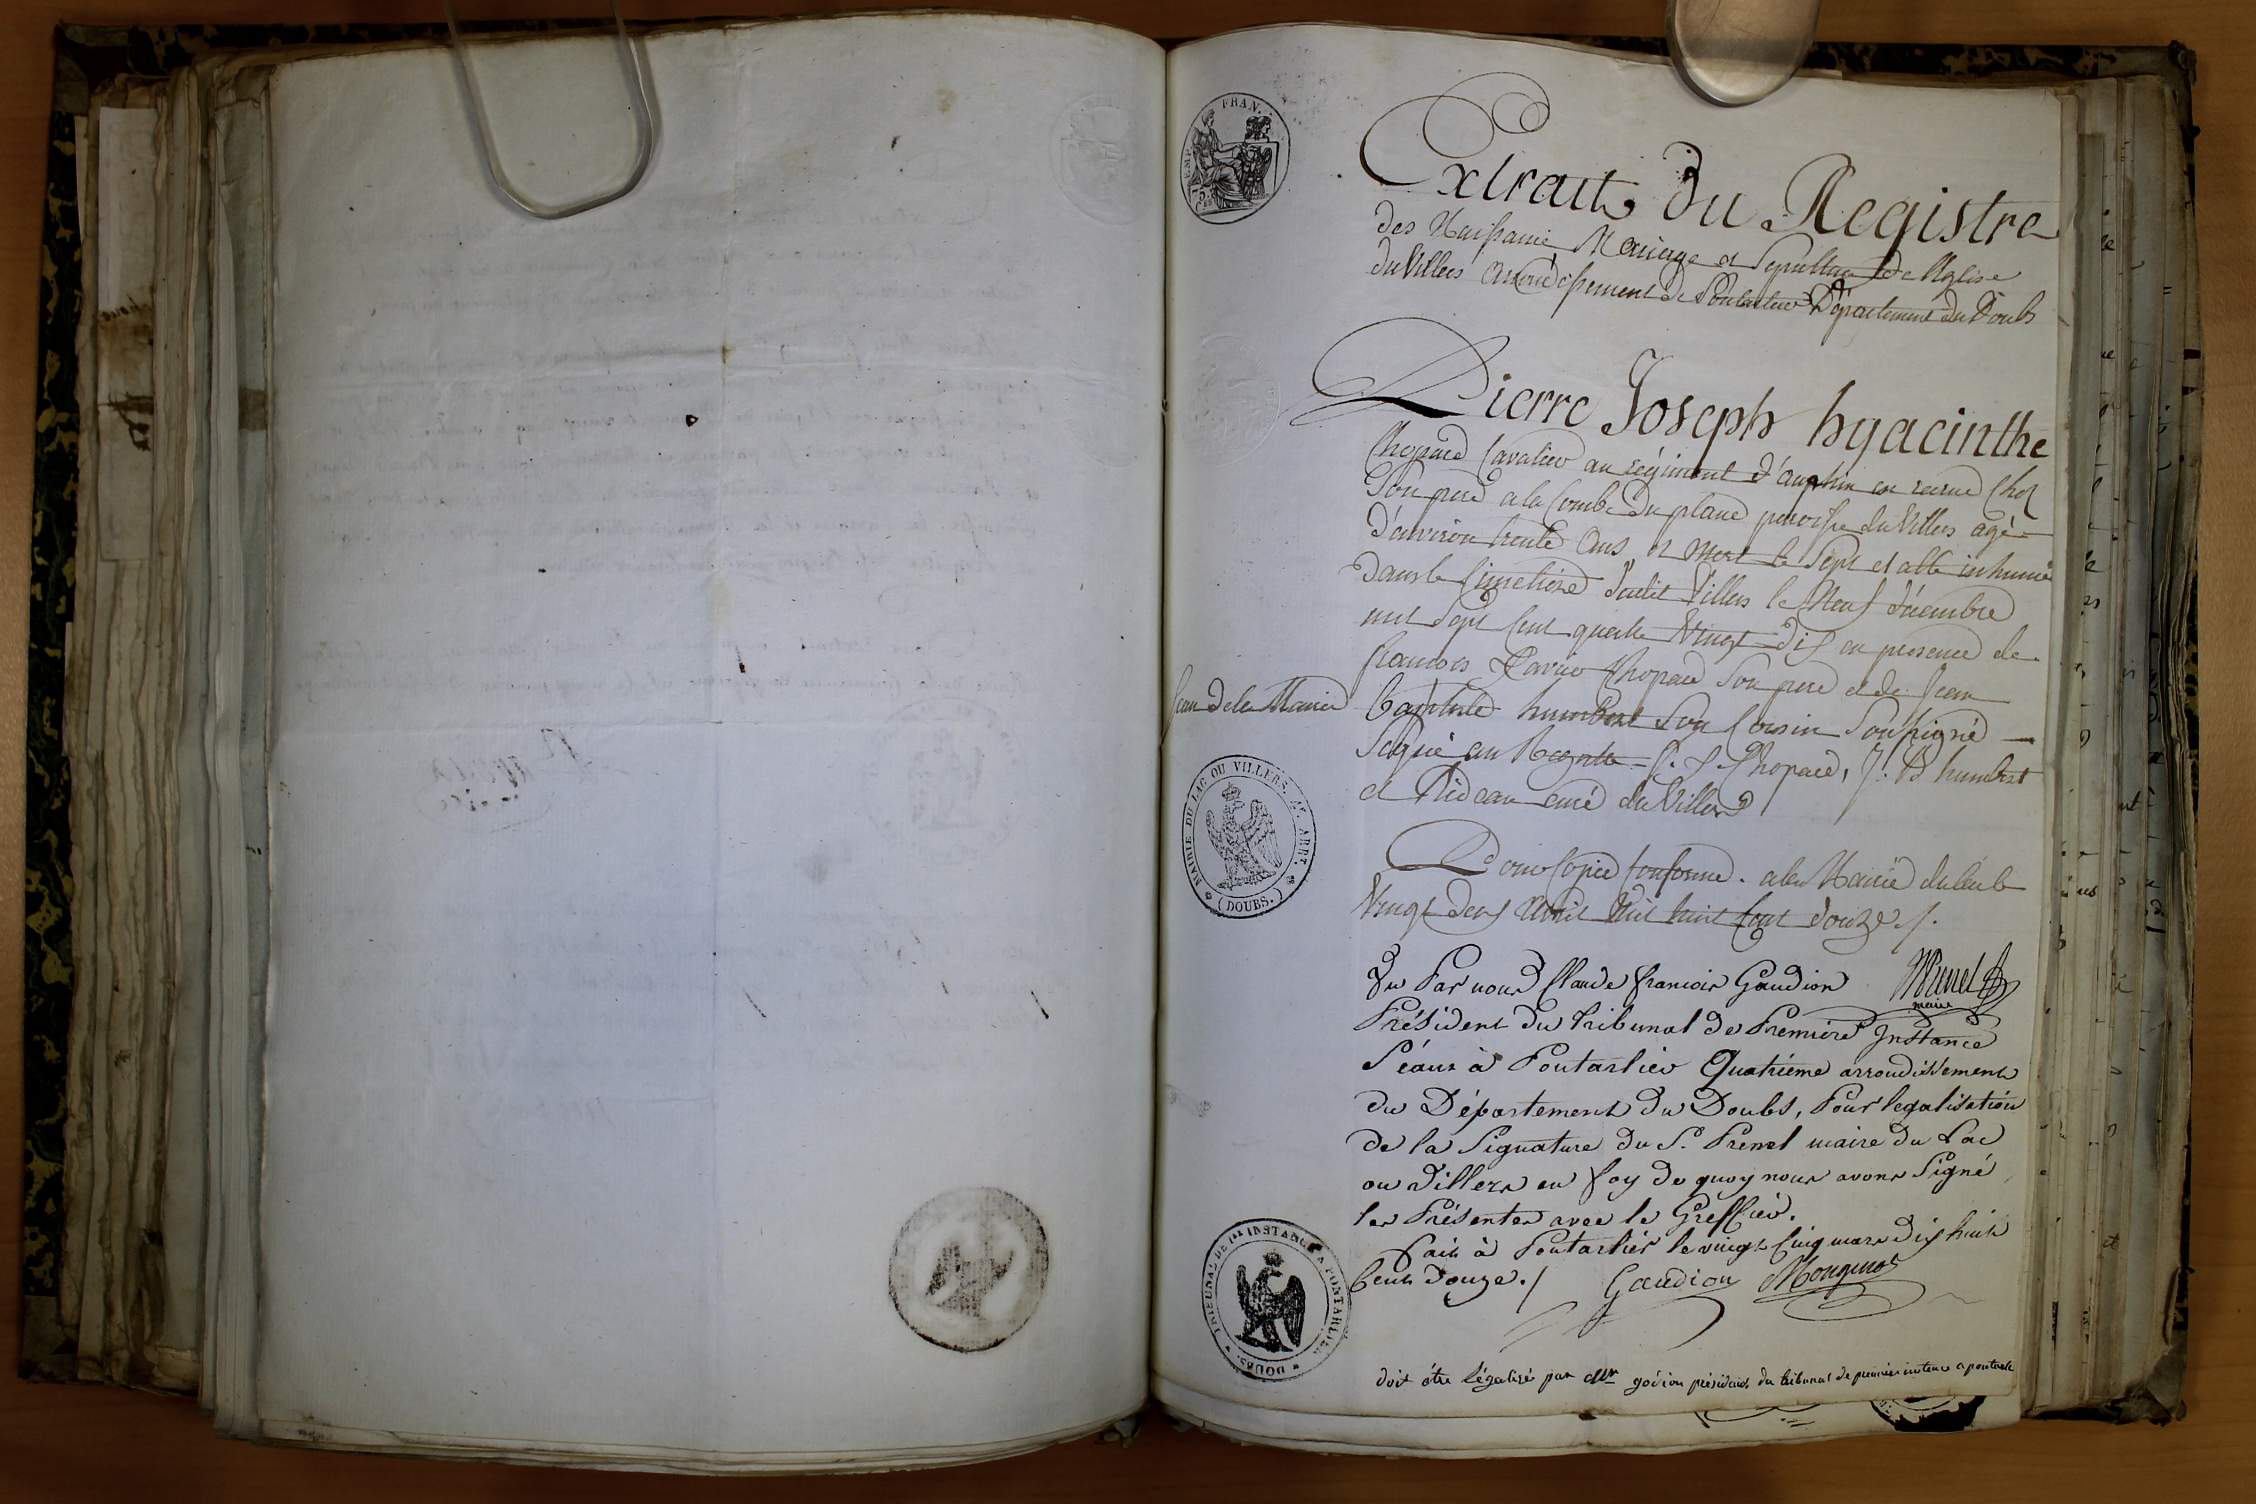 FRAN.
Extrait du Registre
des Naissance Mariage et Sepulture de l'Eglise
du Villers arrondissement de Pontarlier Département du Doubs
Pierre Joseph hyacinthe
Chopard Cavalier au régiment d'auphin en recrue Chez
Son pere a la Combe du plane paroisse du Villers agé
d'environ trente ans est mort le Sept et atté inhumé
dans le Cimetiere dudit Villers le Neuf décembre
mil Sept Cent quatre Vingt dix en presence de
francois Xavier Chopard Son pere et de Jean
Baptiste humbert Son Cousin Soussigné
Jean de la Mairie
Signé au Registre F. X. Chopard, J. B humbert
et Rideau curé du Villers
MAIRIE DU LAC OU VILLERS. 4E. ARRT.
(DOUBS.)
Pour Copie Conforme. a la Mairie du
Vingt deux Mil huit Cent douze ./.
Vu Par nous Claude francois Gaudion
maire
Président du tribunal de Premiere Instance
Séant à Pontarlier Quatriéme arrondissement
du Département du Doubs, Pour legalisation
de la Signature du Sr. Prenel maire du Lac
ou Villers en foy de quoy nous avons Signé
les Présentes avec le Greffier.
fait à Pontarlier le vingt Cinq mars Dix huit
Cent douze ./ Gaudion Monginot
TRIBUNAL DE 1re INSTANCE A PONTARLIER
DOUBS.
doit étre légalisé par Mr godion président du tribunal de premier instence a pontarle